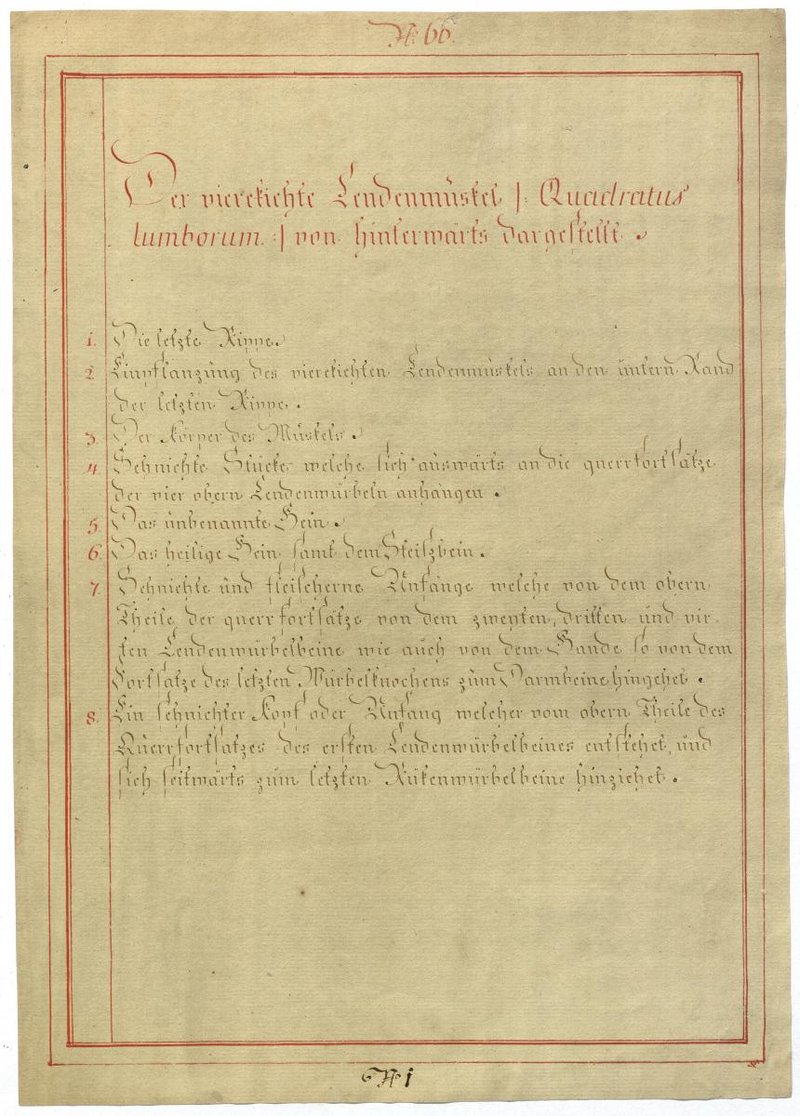 N: 66.
Der vierekichte Lendenmüskel /: Quadratus
lumborum :/ von hinterwärts dargestellt.
1. Die letzte Rippe.
2. Einpflanzüng des vierekichten Lendenmüskels an den üntern Rand
der letzten Rippe.
3. Der Körper des Müskels.
4. Sehnichte Stücke welche sich auswärts an die querrfortsätze
der vier obern Lendenwürbeln anhängen.
5. Das ünbenannte Bein.
6. Das heilige Bein samt dem Steiszbein.
7. Sehnichte ünd fleischerne Anfänge welche von dem obern
Theile der querrfortsätze von dem zweyten, dritten ünd vir-
ten Lendenwürbelbeine wie aüch von dem Bande so von dem
Fortsatze des letzten Würbelknochens züm Darmbeine hingehet.
8. Ein sehnichter Kopf oder Anfang welcher vom obern Theile des
Querrfortsatzes des ersten Lendenwürbelbeines entstehet, ünd
sich seitwärts züm letzten Rükenwürbelbeine hinziehet.
N: 1